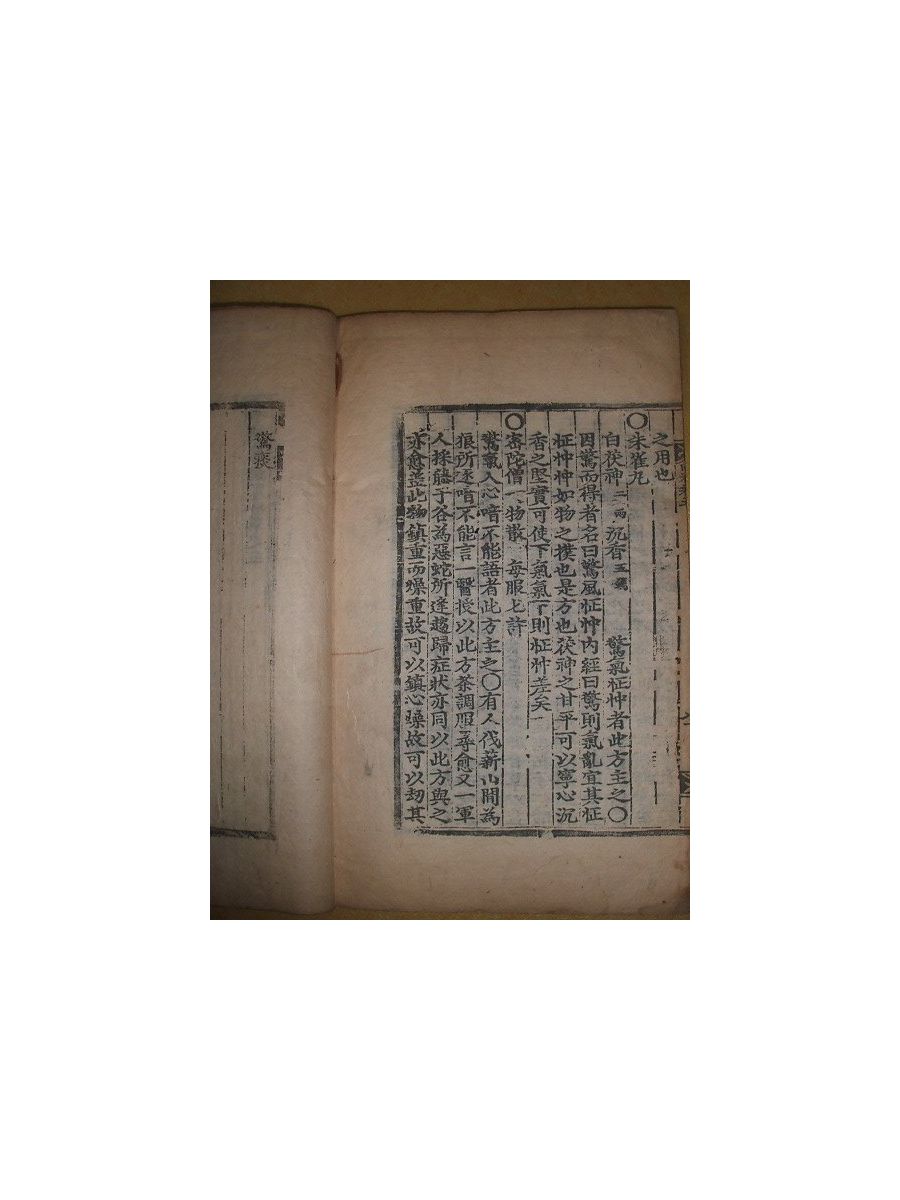 之用也
〇朱雀丸
白茯神二兩沉香五錢 驚氣怔忡者此方主之〇
因驚而得者名曰驚風怔忡內經曰驚則氣亂宜其怔
怔忡忡如物之撲也是方也茯神之甘平可以寧心沉
香之堅實可使下氣氣下則怔忡差矣
〇密陀僧一物散 每服匕許
驚氣入心喑不能語者此方主之〇有人伐薪山間為
狼所逐喑不能言一醫授以此方茶調服尋愈又一軍
人採藤于谷為惡蛇所逢趨歸症狀亦同以此方與之
亦愈蓋此物鎮重而燥重故可以鎮心燥故可以劫其
驚痰